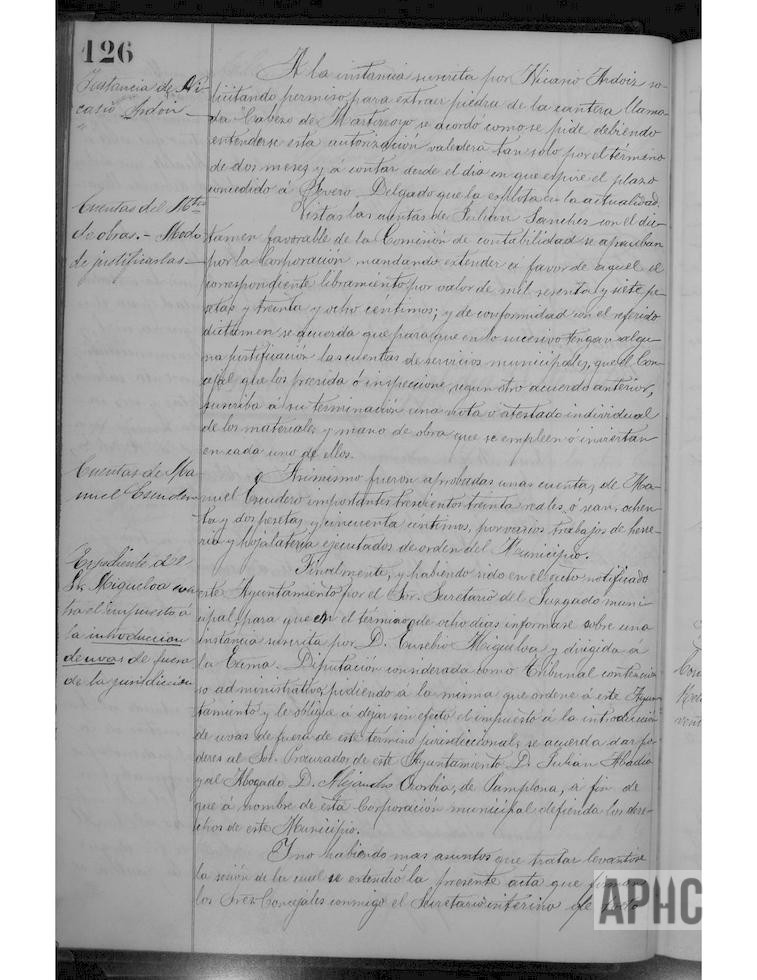 126
Instancia de Ni-
casio Ardoiz
A la instancia suscrita por Nicasio Ardoiz so-
licitando permiso para extraer piedra de la cantera llama-
da "Cabezo de Mastorroyo se acordó como se pide debiendo
entenderse esta autorización valedera tan solo por el término
de dos meses y á contar desde el dia en que espire el plazo
concedido á Severo Delgado que la explota en la actualidad.
Cuentas del Mtro
de obras.- Modo
de justificarlas-
Vistas las cuentas de Julian Sanchez con el dic-
tamen favorable de la Comisión de contabilidad se aprueban
por la Corporación mandando extender á favor de aquel el
correspondiente libramiento por valor de mil sesenta y siete pe-
setas y treinta y ocho céntimos; y de conformidad con el referido
dictamen se acuerda que para que en lo sucesivo tengan algu-
na justificación las cuentas de servicios municipales, que el Con-
cejal que los presida ó inspeccione, segun otro acuerdo anterior,
suscriba á su terminación una nota o atestado individual
de los materiales y mano de obra que se empleen ó inviertan
en cada uno de ellos.
Cuentas de Ma-
nuel Escudero
Asimismo fueron aprobadas unas cuentas de Ma-
nuel Escudero importantes trescientos treinta reales, o sean, ochen-
ta y dos pesetas y cincuenta céntimos, por varios trabajos de herre-
ria y hojalateria ejecutados de orden del Municipio.
Expediente de
Migueloa con-
tra el impuesto á
la introduccion
de uvas de fuera
de la jurisdiccion
Finalmente, y habiendo sido en el acto notificado
este Ayuntamiento por el Sor. Secretario del Juzgado muni-
cipal para que en el término de ocho dias informase sobre una
instancia suscrita por D. Eusebio Migueloa y dirigida á
la Exma. Diputación considerada como Tribunal contencio-
so administrativo, pidiendo á la misma que ordene á este Ayun-
tamiento y le obligue á dejar sin efecto el impuesto á la introducción
de uvas de fuera de este término jurisdiccional, se acuerda dar po-
deres al Sor. Procurador de este Ayuntamiento D. Julian Abadia
y al Abogado D. Alejandro Ororbia, de Pamplona, á fin de
que á nombre de esta Corporación municipal defienda los dere-
chos de este Municipio.
Y no habiendo mas asuntos que tratar levantóse
la sesión de la cual se extendió la presente acta que firman
los Sres. Concejales conmigo el Secretario interino de
APHC